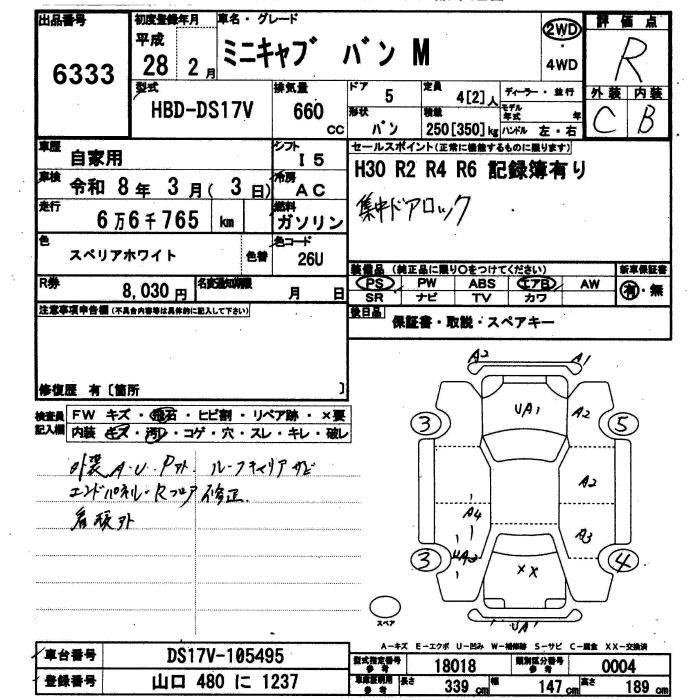 出品番号 6333
初度登録年月 平成 28年 2月
車名・グレード ミニキャブ バン M
2WD・4WD
評価点 R
外装 C 内装 B
型式 HBD-DS17V
排気量 660 cc
ドア 5
形状 バン
定員 4[2]人
積載 250[350]kg
ディーラー・並行
モデル年式 年
ハンドル 左・右
車歴 自家用
シフト I5
車検 令和 8年 3月( 3日)
冷房 AC
走行 6万6千765 km
燃料 ガソリン
色 スペリアホワイト 色替
色コード 26U
R券 8,030円
名変通知期限 月 日
セールスポイント(正常に機能するものに限ります)
H30 R2 R4 R6 記録簿有り
集中ドアロック
装備品 (純正品に限り○をつけてください)
新車保証書 有・無
PS PW ABS エアB AW
SR ナビ TV カワ
後日品 保証書・取説・スペアキー
注意事項申告欄(不具合内容等は具体的に記入して下さい)
修復歴 有〔箇所 〕
検査員記入欄
FW キズ・飛石・ヒビ割・リペア跡・×要
内装 キズ・汚レ・コゲ・穴・スレ・キレ・破レ
外装A・U Pカケ ルーフキャリアサビ
エンドパネル・Rフロア修正
看板外
A2 A1
3 UA1 A2 5
A2
A4 A3
3 UA3 4
XX
UA1
スペア
A-キズ E-エクボ U-凹み W-補修跡 S-サビ C-腐食 XX-交換済
車台番号 DS17V-105495
登録番号 山口 480 に 1237
型式指定番号 参考 18018
類別区分番号 参考 0004
車庫証明用 参考 長さ 339 cm 幅 147 cm 高さ 189 cm